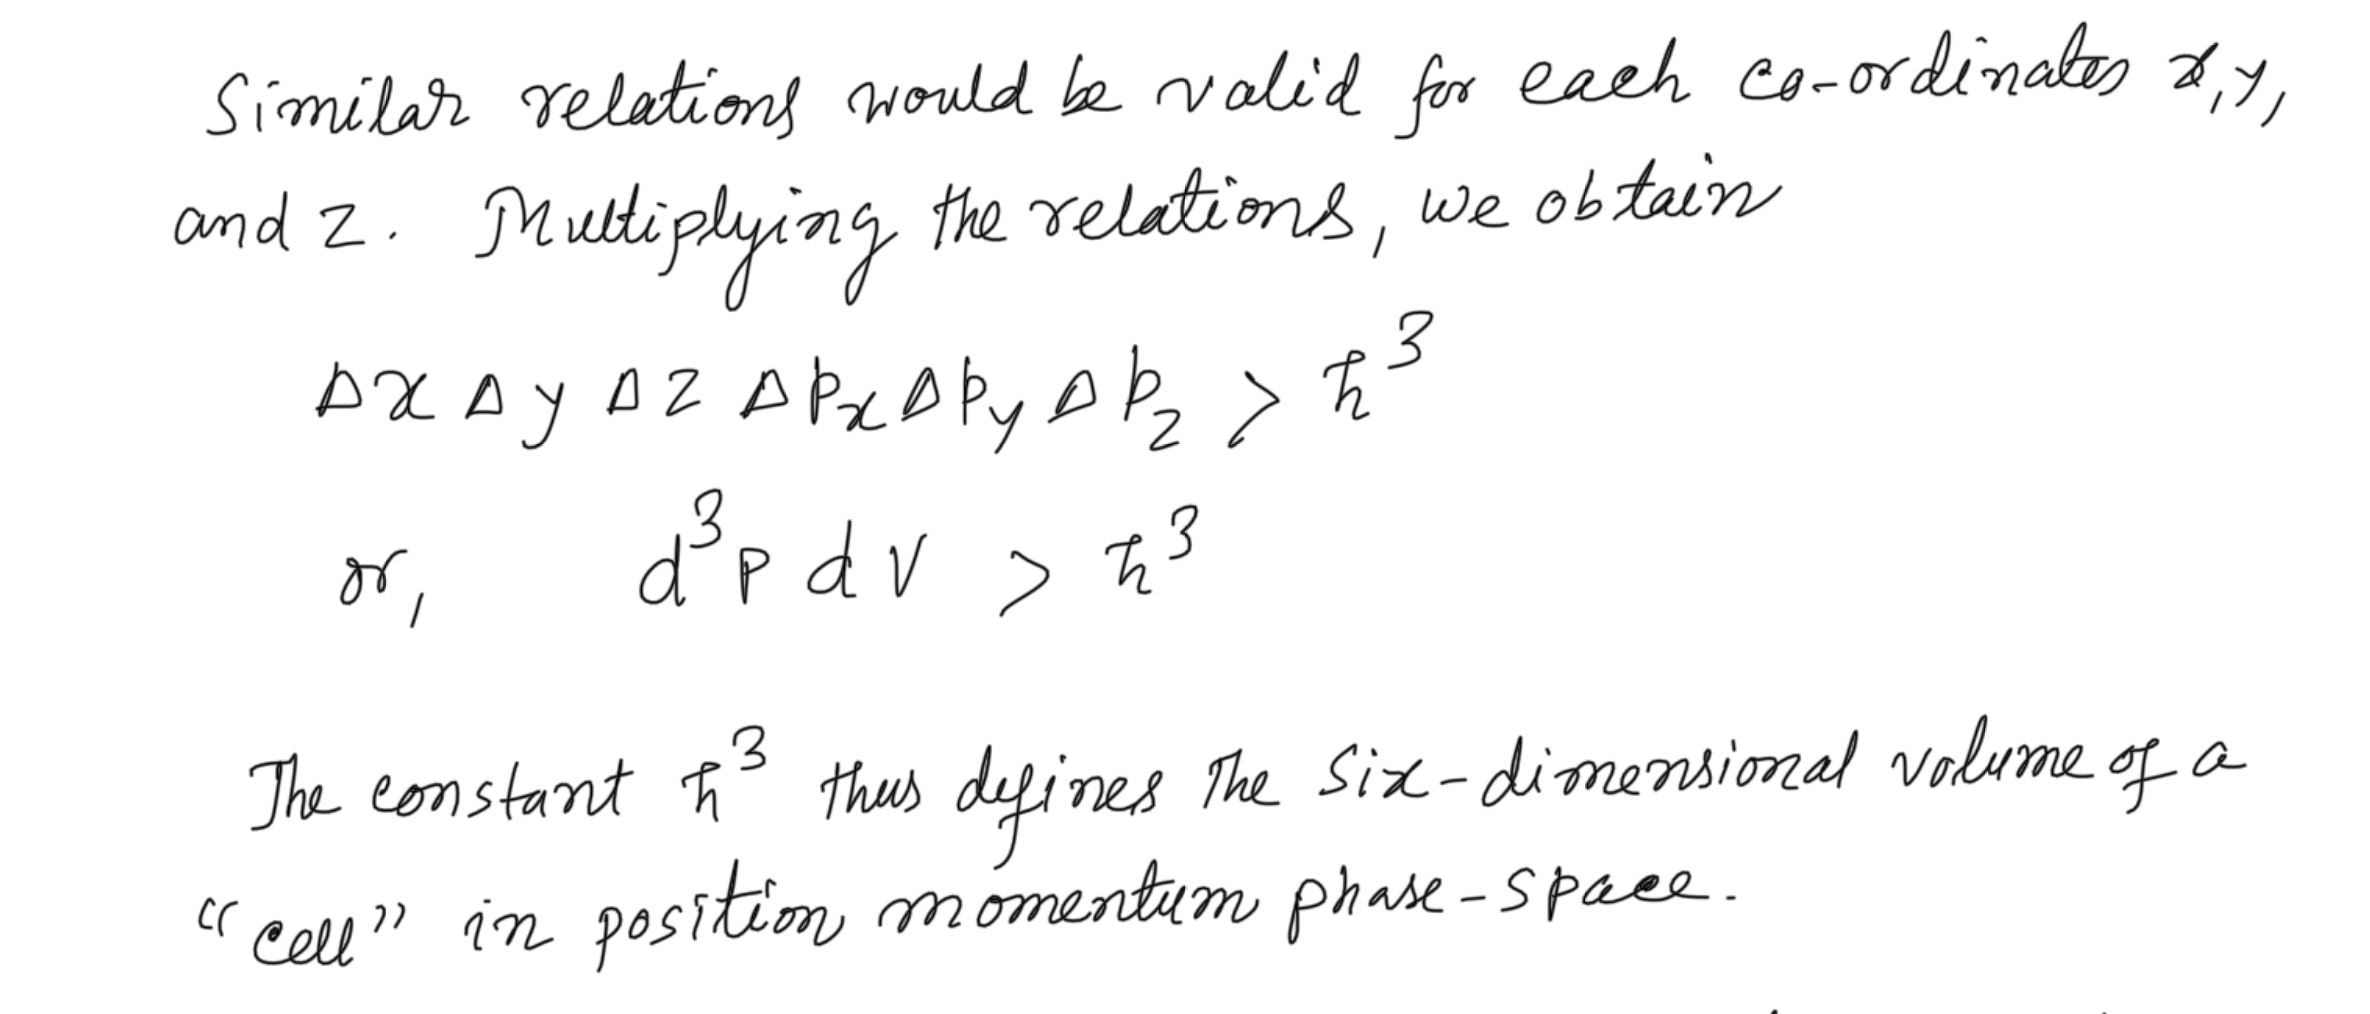 Similar relations would be valid for each co-ordinates x, y,
and z. Multiplying the relations, we obtain
Δx Δy Δz Δpx Δpy Δpz > ħ³
or, d³p dV > ħ³
The constant ħ³ thus defines the six-dimensional volume of a
"cell" in position momentum phase-space.